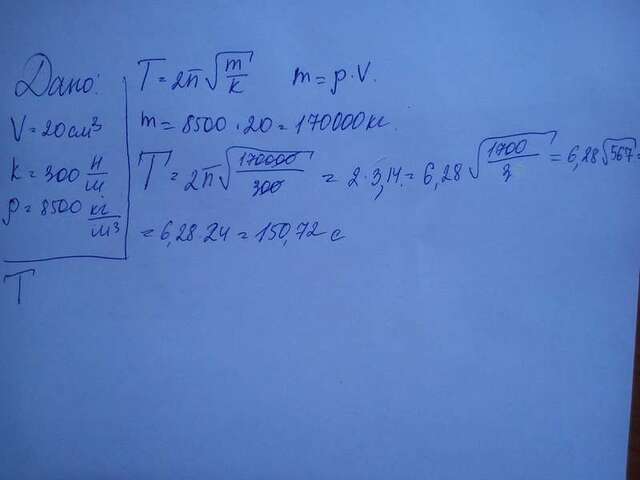 Дано:
V = 20 см³
k = 300 Н/м
ρ = 8500 кг/м³
T
T = 2π√(m/k)   m = ρ·V.
m = 8500 · 20 = 170000 кг.
T = 2π√(170000/300) = 2·3,14 = 6,28√(1700/3) = 6,28√567 =
= 6,28·24 = 150,72 с